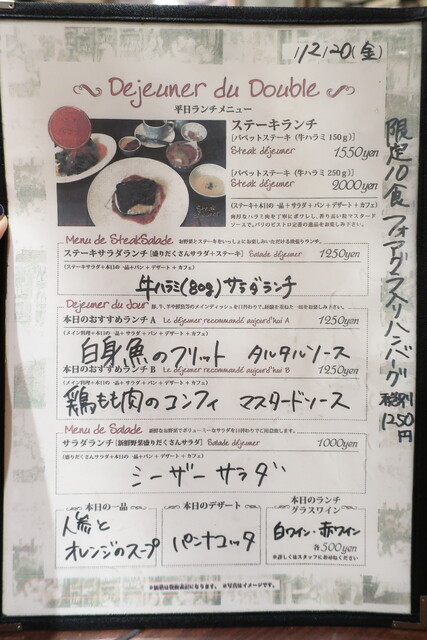 11/21,20(金)
Dejeuner du Double
平日ランチメニュー
ステーキランチ
[バベットステーキ (牛ハラミ 150g)]
Steak déjeuner 1550yen
[バベットステーキ (牛ハラミ 250g)]
Steak déjeuner 2000yen
(ステーキ+本日の一品+サラダ+パン+デザート+カフェ)
Menu de SteakSalade
ステーキサラダランチ [盛りだくさんサラダ+ステーキ] Salade déjeuner 1250yen
(ステーキサラダ+本日の一品+パン+デザート+カフェ)
牛ハラミ(80g)サラダランチ
Dejeuner du Jour
本日のおすすめランチ A Le déjeuner recommandé aujourd'hui A 1250yen
(メイン料理+本日の一品+サラダ+パン+デザート+カフェ)
白身魚のフリット タルタルソース
本日のおすすめランチ B Le déjeuner recommandé aujourd'hui B 1250yen
(メイン料理+本日の一品+サラダ+パン+デザート+カフェ)
鶏もも肉のコンフィ マスタードソース
Menu de Salade
サラダランチ [新鮮野菜盛りだくさんサラダ] Salade déjeuner 1000yen
(盛りだくさんサラダ+本日の一品+パン+デザート+カフェ)
シーザーサラダ
本日の一品
人参と
オレンジのスープ
本日のデザート
パンナコッタ
本日のランチ
グラスワイン
白ワイン・赤ワイン
各500yen
※詳しくはスタッフにお尋ねください
※写真はイメージです。
限定10食 フォアグラ入りハンバーグ 税別 1250円